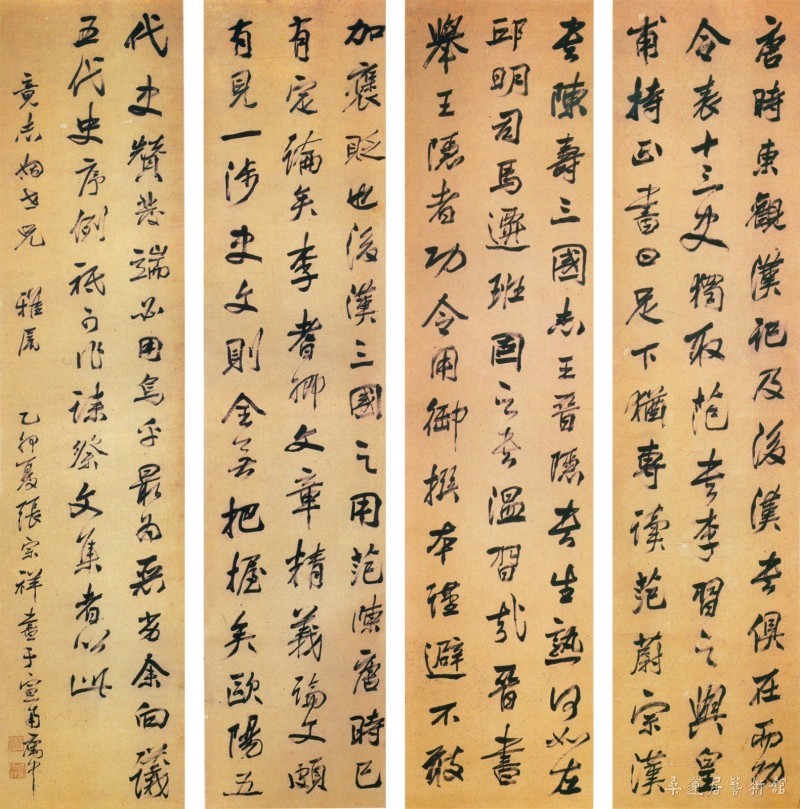 唐時東觀漢記及後漢書俱在而功
令表十三史獨取范書李習之與皇
甫持正書曰足下猶專讀范蔚宗漢
書陳壽三國志王晉隱書生熟何如左
邱明司馬遷班固之書溫習哉晉書
舉王隱者功令用御撰本謹避不敢
加褒貶也後漢三國之用范陳唐時已
有定論矣李耆卿文章精義論文頗
有見一涉史文則全無把握矣歐陽五
代史贊發端必用烏乎最為惡劣余向議
五代史序例祇可作誄祭文集者以此
竟志姻世兄 雅屬 乙卯夏張宗祥書于宣南寓中
桑蓮居藝術館